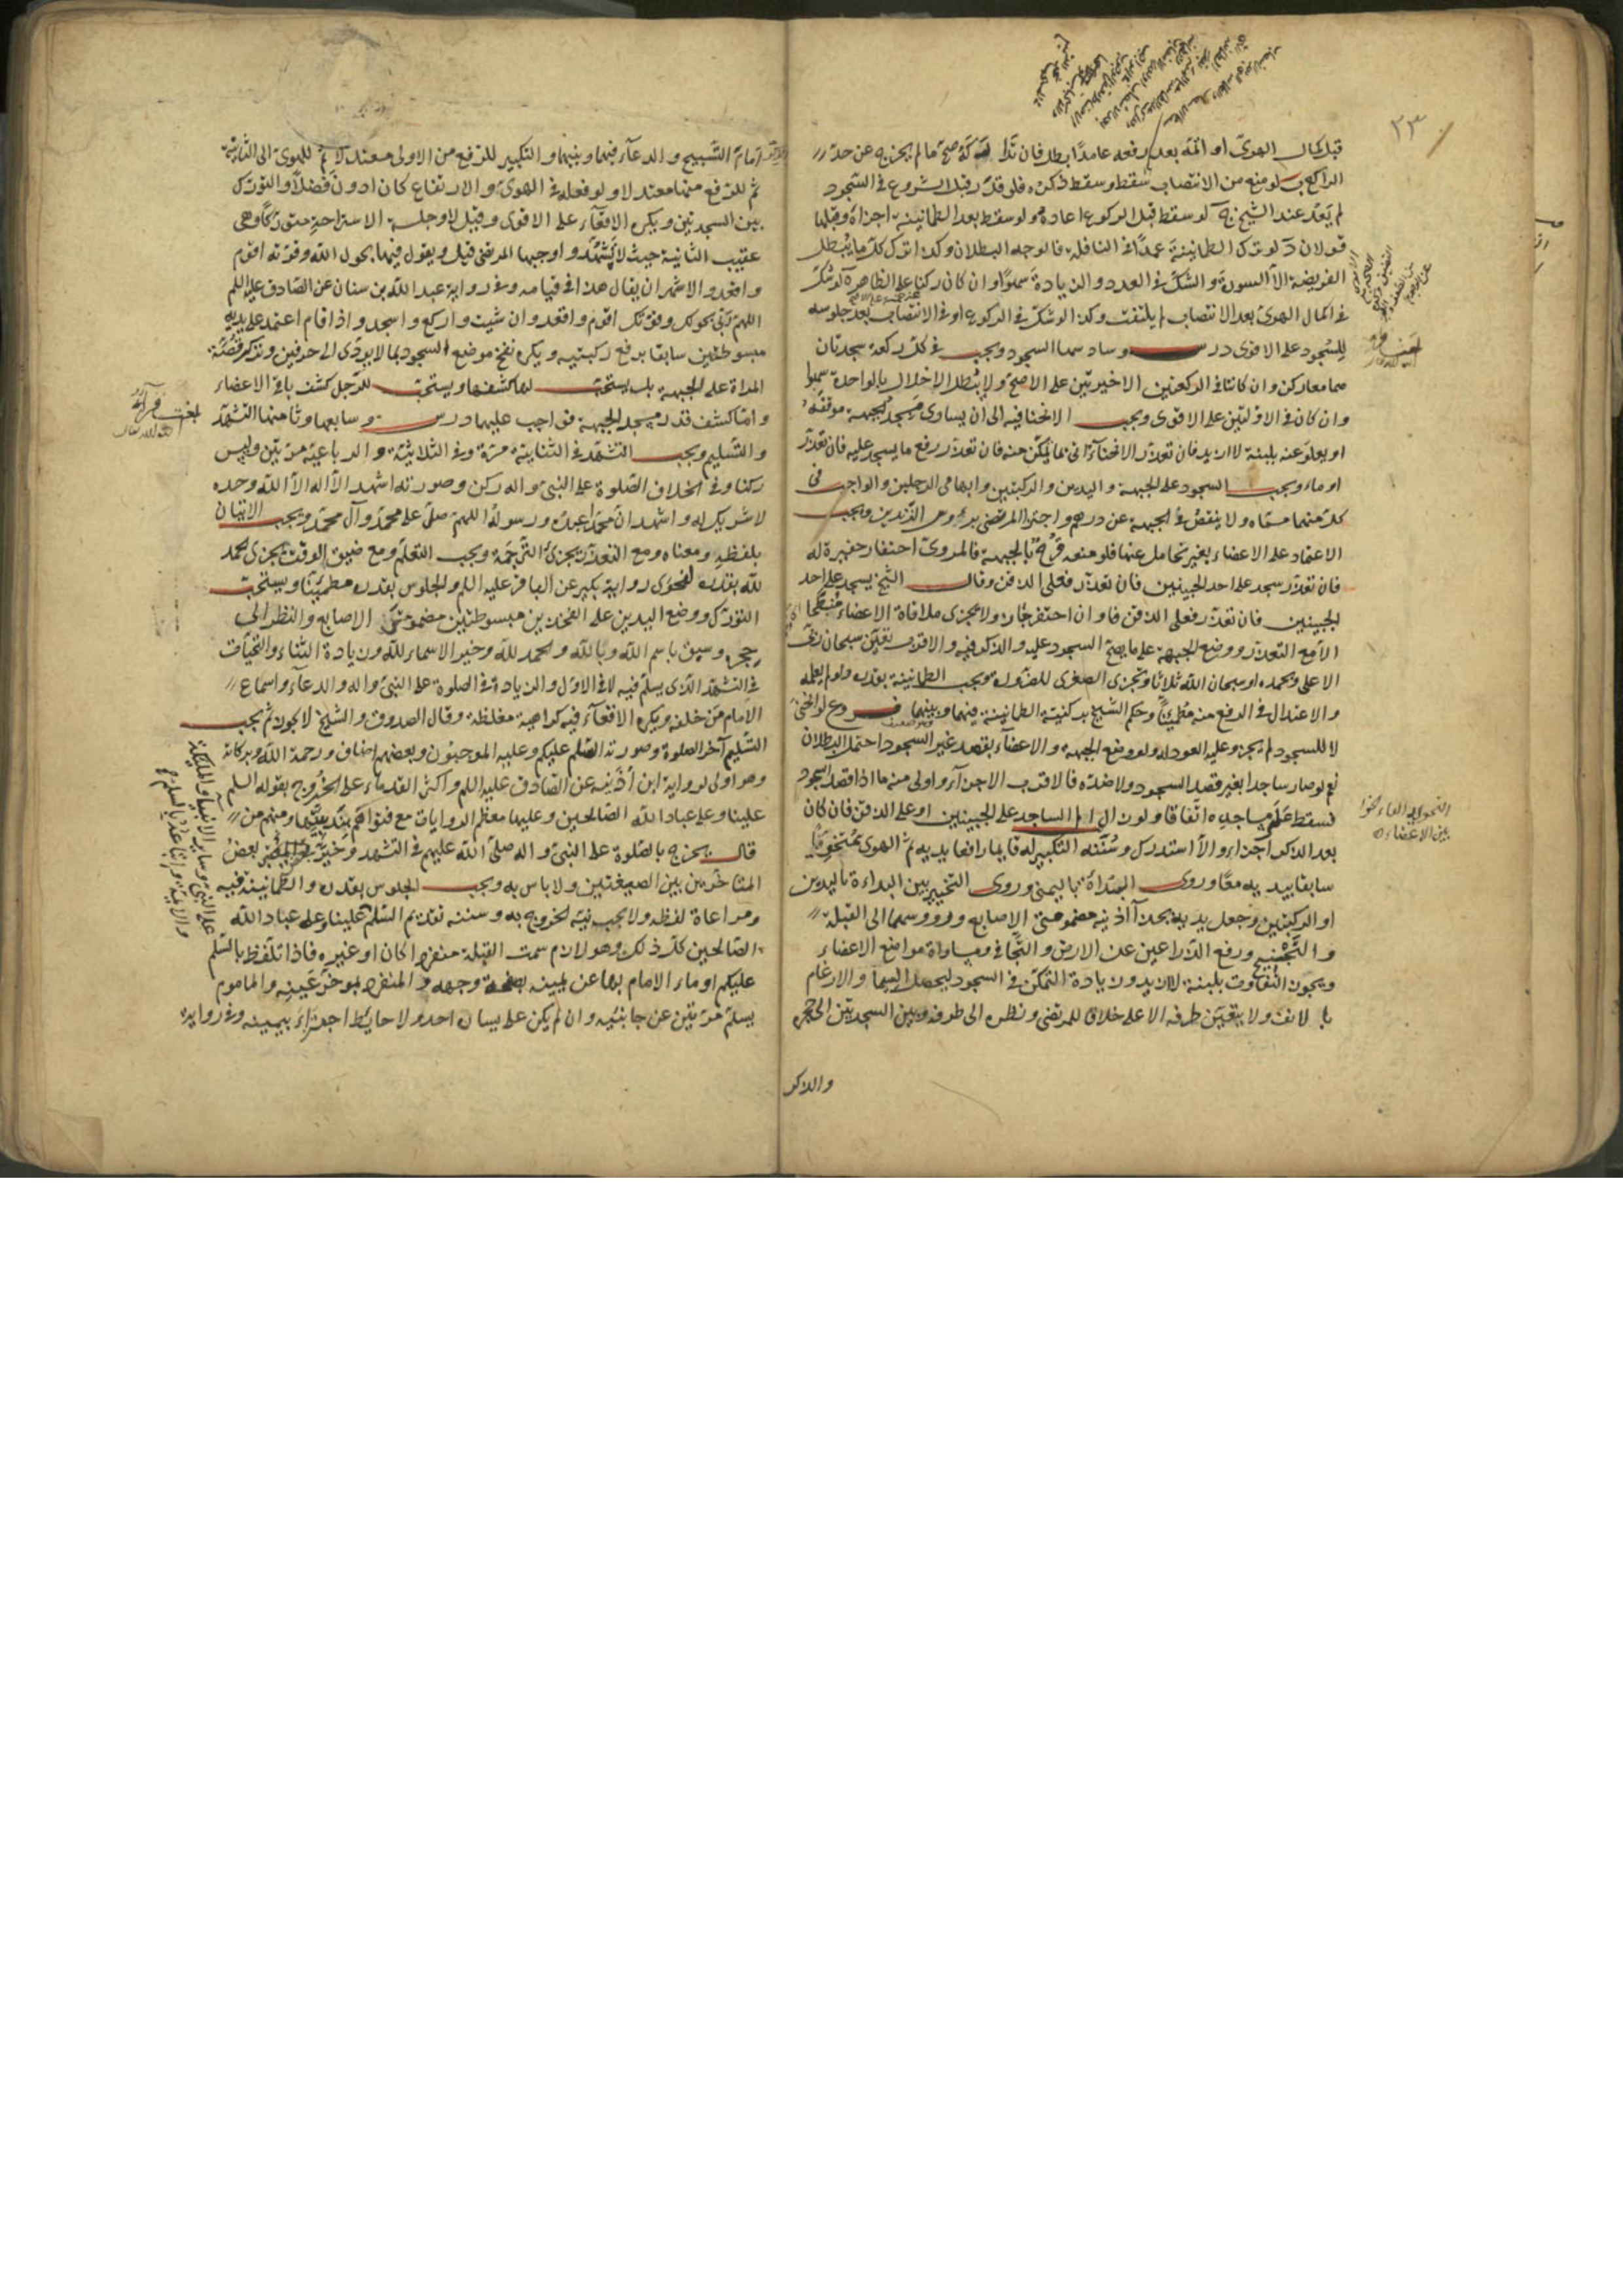 ٢٣
قبل كمال الهوى او اثمه بعد رفعه عامدا بطل فان تدا ركه صح ما لم يخرج عن حد
الراكع ب لو منع من الانتصاب سقط وسقط ذكره فلو قدر قبل الشروع فى السجود
لم يعد عند الشيخ ج لو سقط قبل الركوع اعاده ولو سقط بعد الطمانينة اجزاه وقبلها
قولان د لو ترك الطمانينة عمدا فى النافلة فالوجه البطلان وكذا ترك كل ما يبطل
الفريضة الا السورة والشك فى العدد والزيادة سهوا وان كان ركنا على الظاهر ة لو شك
فى اكمال الهوى بعد الانتصاب لم يلتفت وكذا لو شك فى الركوع او فى الانتصاب بعد جلوسه
للسجود على الاقوى درس وسادسها السجود ويجب فى كل ركعة سجدتان
هما معا ركن وان كانتا فى الركعتين الاخيرتين على الاصح ولا يبطل الاخلال بالواحدة سهوا
وان كان فى الاوليتين على الاقوى ويجب الانحنا فيه الى ان يساوى مسجد لجبهة موقفه
او يعلو عنه بلبنة لا ازيد فان تعذر الانحناء اتى بما يمكن منه فان تعذر رفع ما يسجد عليه فان تعذر
اوماء ويجب السجود على الجبهة واليدين والركبتين وابهامى الرجلين والواجب فى
كل منها مسماه ولا ينقص فى الجبهة عن درهم واجتزا المرتضى برؤوس الزندين ويجب
الاعتماد على الاعضاء بغير تحامل عنها فلو منعه قرح بالجبهة فالمروى احتفار حفيرة له
فان تعذر سجد على احد الجبينين فان تعذر فعلى الذقن وقال الشيخ يسجد على احد
الجبينين فان تعذر فعلى الذقن فاو ان احتفر جاز ولا يجزى ملاقاة الاعضاء منبطحا
الا مع التعذر ووضع الجبهة على ما يصح السجود عليه والذكر فيه والاقرب تعين سبحان ربى
الاعلى وبحمده او سبحان الله ثلاثا وتجزى الصغرى للضرورة ويجب الطمانينة بقدره ولو لم يعلمه
والاعتدال فى الرفع منه مطمئنا وحكم الشيخ بركنية الطمانينة فيهما وبينهما فروع لو انحنى
لا للسجود لم يجز وعليه العود له ولو وضع الجبهة والاعضاء بقصد غير السجود احتمل البطلان
نعم لو صار ساجدا بغير قصد السجود ولا ضده فالاقرب الاجزاء واولى منه ما اذا قصد السجود
فسقط على مساجده اتفاقا ولو زال الم الساجد على الجبينين او على الذقن فان كان
بعد الذكر اجزاء والا استدرك وسننه التكبير له قايما رافعا يديه ثم الهوى متخويا
سابقا بيديه معا وروى المبتداة باليمنى وروى التخيير بين البداءة باليدين
او الركبتين وجعل يديه بحذا اذنيه مضمومتى الاصابع ورووسهما الى القبلة
والتجنيح ورفع الذراعين عن الارض والتجافى ومساواة مواضع الاعضاء
ويجوز التفاوت بلبنة لا ازيد وزيادة التمكن فى السجود ليحصل السيما والارغام
با لانف ولا يتعين طرفه الاعلى خلافا للمرتضى ونظره الى طرفه وبين السجدتين الى حجره
والذكر
امام التسبيح والدعاء فيهما وبينهما والتكبير للرفع من الاولى معتدلا ثم للهوى الى الثانية
ثم للرفع منها معتدلا ولو فعله فى الهوى والارتفاع كان ادون فضلا والتورك
بين السجدتين ويكره الاقعاء على الاقوى وقيل لا وجلسة الاستراحة متوركا وهى
عقيب الثانية حيث لا يتشهد واوجبها المرتضى قيل ويقول فيها بحول الله وقوته اقوم
واقعد والاشهر ان يقال هذا فى قيامه وفى رواية عبد الله بن سنان عن الصادق عليه السلم
اللهم ربى بحولك وقوتك اقوم واقعد وان شيت واركع واسجد واذا قام اعتمد على يديه
مبسوطتين سابقا برفع ركبتيه ويكره نفخ موضع السجود بما لا يؤدى الى حرفين
المراة على الجبهة بل يستحب لها كشفها ويستحب للرجل كشف باقى الاعضاء
واما كشف قدر مسجد الجبهة فواجب عليهما درس وسابعها وثامنها التشهد
والتسليم ويجب التشهد فى الثنائية مرة وفى الثلاثية والرباعية مرتين وليس
ركنا وفى الخلاف الصلوة على النبى واله ركن وصورته اشهد ان لا اله الا الله وحده
لا شريك له واشهد ان محمدا عبده ورسوله اللهم صل على محمد وآل محمد ويجب الاتيان
بلفظه ومعناه ومع التعذر يجزى الترجمة ويجب التعلم ومع ضيق الوقت يجزى الحمد
لله بقدره لفحوى رواية بكير عن الباقر عليه السلم والجلوس بقدره مطمئنا ويستحب
التورك ووضع اليدين على الفخذين مبسوطتين مضمومتى الاصابع والنظر الى
حجره وسبق باسم الله وبالله والحمد لله وخير الاسماء لله وزيادة الثناء والتحيات
فى التشهد الذى يسلم فيه لا فى الاول والزيادة فى الصلوة على النبى واله والدعاء واسماع
الامام من خلفه ويكره الاقعاء فيه كراهية مغلظة وقال الصدوق والشيخ لا يجوز ثم يجب
التسليم آخر الصلوة وصورته السلم عليكم وعليه الموجبون وبعضهم اضاف ورحمة الله وبركاته
وهو اولى لرواية ابن اذينه عن الصادق عليه السلم واكثر القدماء على الخروج بقوله السلم
علينا وعلى عباد الله الصالحين وعليها معظم الروايات مع فتواهم بندبيتها ومنهم من
قال يخرج بالصلوة على النبى واله صلى الله عليهم فى التشهد وخير بعض
المتاخرين بين الصيغتين ولا باس به ويجب الجلوس بقدره والطمانينة فيه
ومراعاة لفظه ولا يجب نية الخروج به وسننه تقديم السلم علينا وعلى عباد الله
الصالحين كل ذلك وهو لازم سمت القبلة منفردا كان او غيره فاذا تلفظ بالسلم
عليكم اوماء الامام بها عن يمينه بصفحة وجهه والمنفرد بموخر عينه والماموم
يسلم مرتين عن جانبيه وان لم يكن على يساره احد ولا حايط اجتزاء بيمينه وفى رواية
على النبى وساير الانبياء والملئكة
والائمة